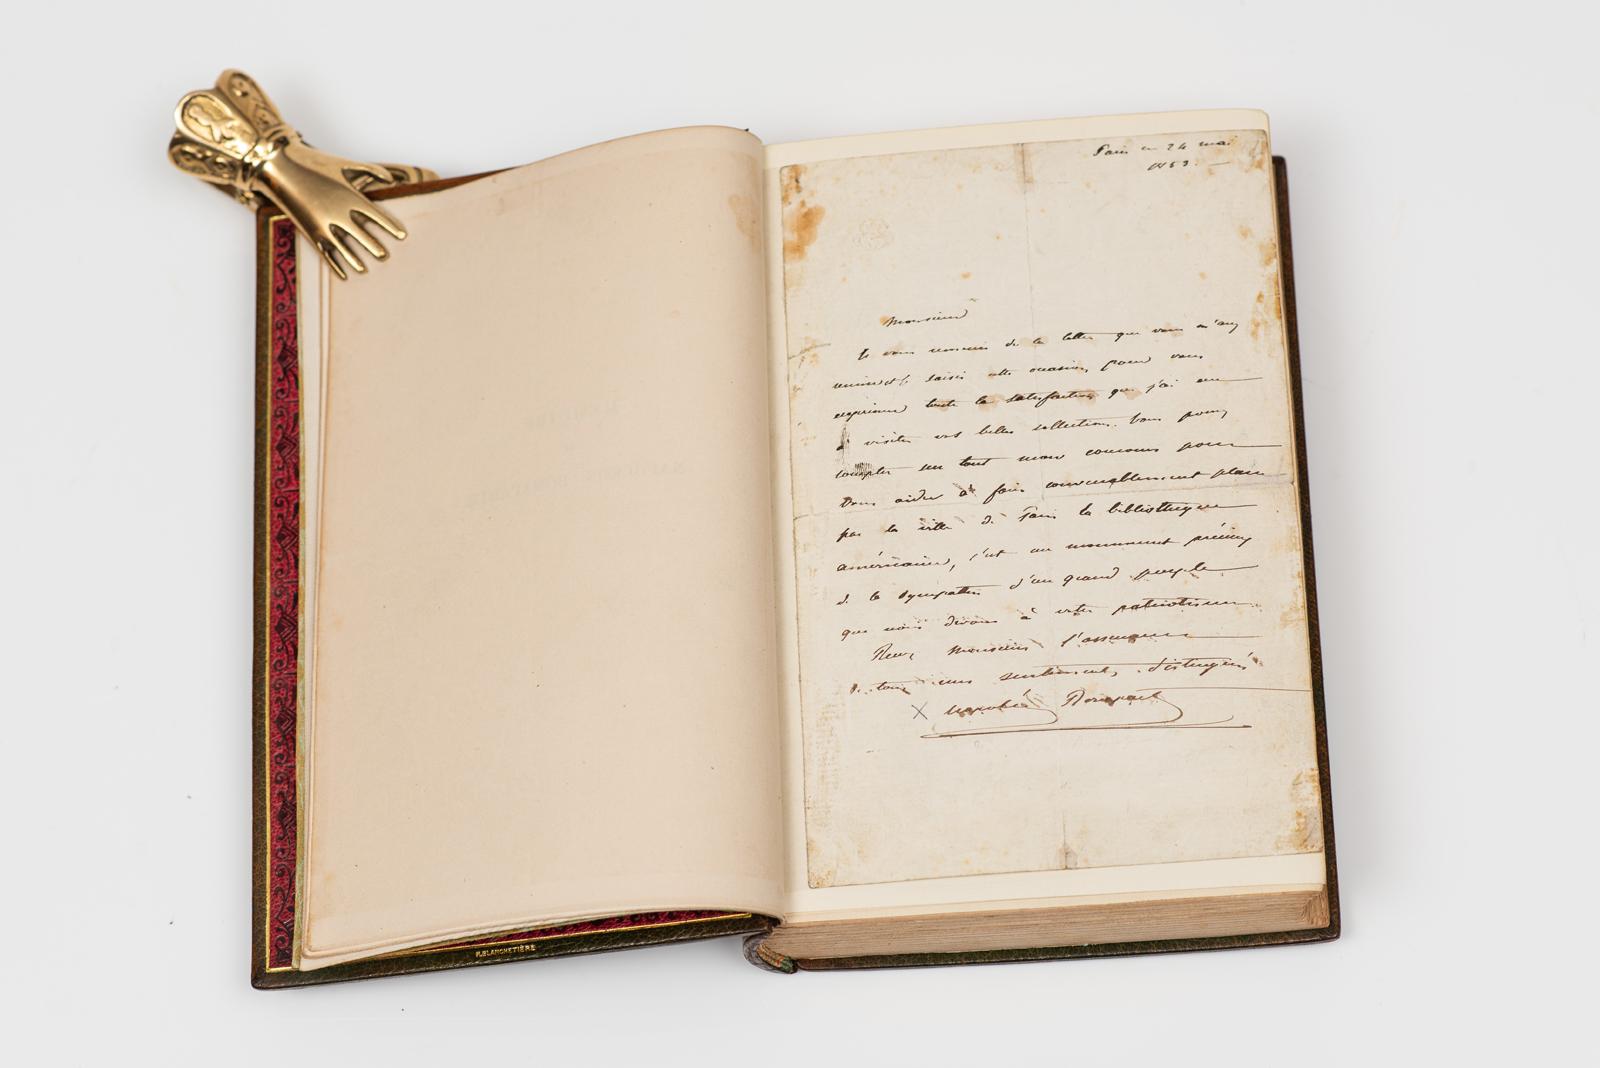 Paris ce 24 mai
1853.
Monsieur
Je vous remercie de la lettre que vous m'avez
et saisis cette occasion, pour vous
exprimer toute la satisfaction que j'ai eue
à visiter vos belles collections. Vous pouvez
compter sur tout mon concours pour
vous aider à faire convenablement placer
par la ville de Paris la bibliothèque
américaine, c'est un monument précieux
de la sympathie d'un grand peuple
que nous devons à votre patriotisme
Recevez Monsieur l'assurance
de tous mes sentiments distingués
Napoléon Bonaparte
P. BLANCHETIÈRE